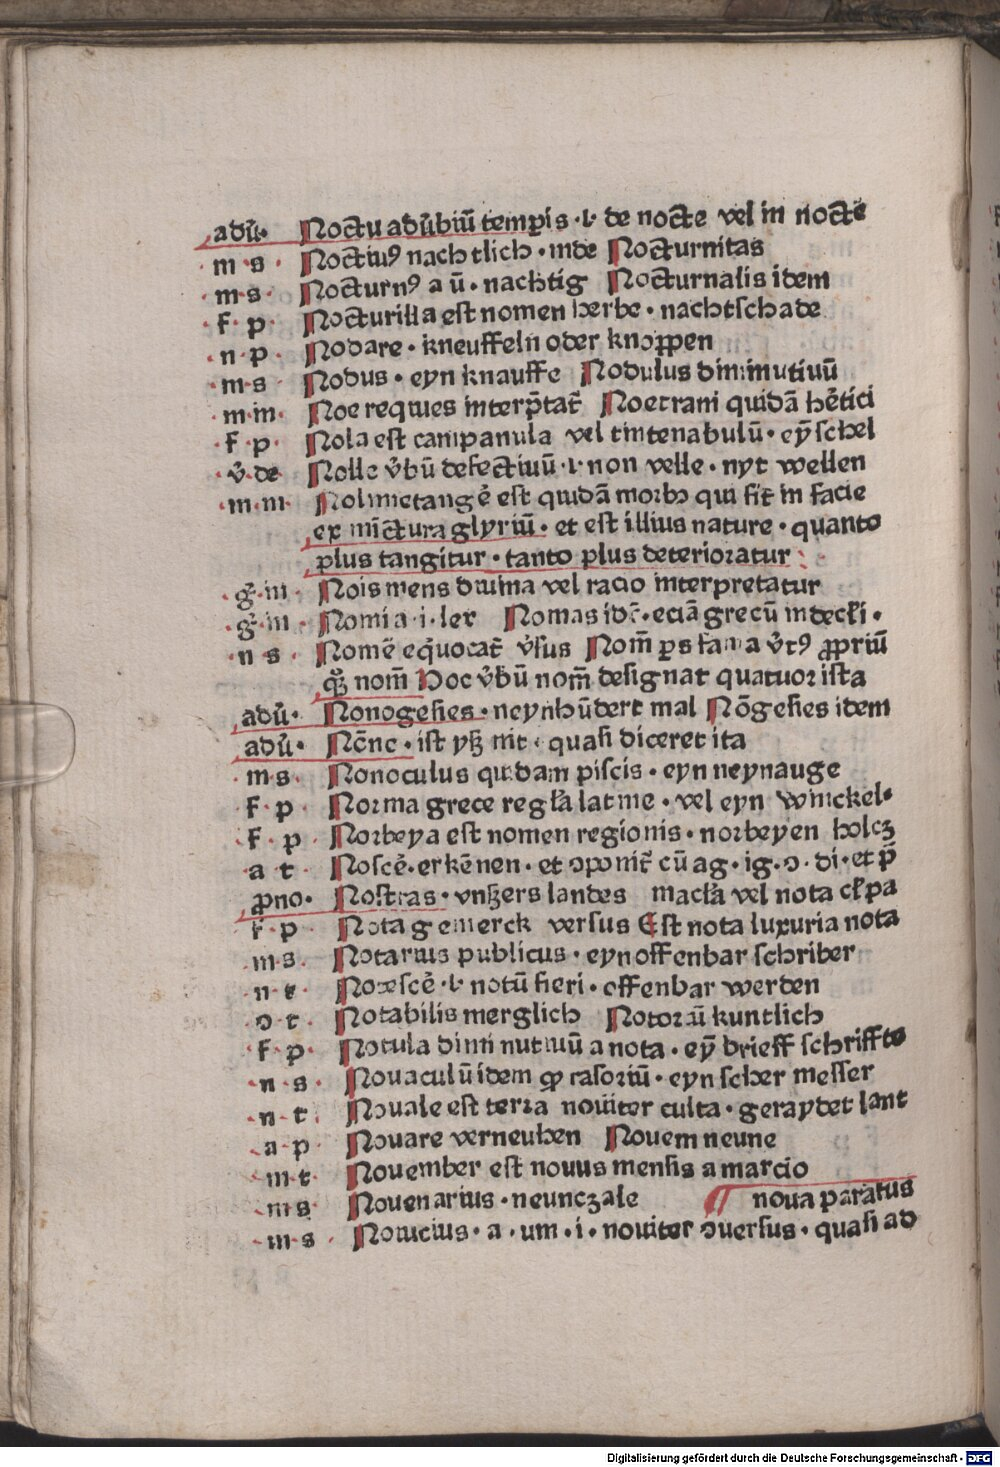 adũ· Noctu adũbiũ temꝑis ·l· de nocte vel in nocte
m s · Noctiuꝰ nachtlich · inde Nocturnitas
·m·s· Nocturnꝰ a ũ · nachtig Nocturnalis idem
·f·p· Nocturilla est nomen herbe · nachtschade
·n·p· Nodare · kneuffeln oder knoppen
·m·s Nodus · eyn knauffe Nodulus diminutiuũ
·m·m· Noe requies interp̃tat̃ Noetrani quidã hẽtici
·f·p· Nola est campanula vel tintenabulũ · eỹ schel
·ṽ·de Nolle ṽbũ defectiuũ ·l· non velle · nyt wellen
·m·m· Nolimetangẽ est quidã morbꝰ qui fit̃ in facie
ex mĩctura glyriũ · et est illius nature · quanto
plus tangitur · tanto plus deterioratur
·g̃·m· Nois mens diuina vel racio interpretatur
·g̃·m· Nomia ·i· lex Nomas idẽ · eciã grecũ indecłi ·
·n s· Nomẽ eq̃uocat̃ ṽsus Nom̃ ꝑs fama ṽtꝰ ꝓpriũ
nom̃ Hoc ṽbũ nom̃ designat quatuor ista
adũ· Nonogesies · neynhũdert mal Nõgesies idem
adũ· Nõne · ist yß nit · quasi diceret ita
·m s· Nonoculus quidam piscis · eyn neynauge
·f p· Norma grece regła latine · vel eyn winckel·
·f·p· Norbeya est nomen regionis · norbeyen holcz
·a t· Noscẽ · erkẽnen · et ɔponit̃ cũ ag · ig · ɔ · di · et p̃
ꝓno· Nostras · vnßers landes macła vel nota cłpa
f·p· Nota gemerck versus Est nota luxuria nota
·m s· Notarius publicus · eyn offenbar schriber
·n·t· Notescẽ ·l· notũ fieri · offenbar werden
·ɔ·t· Notabilis merglich Notoriũ kuntlich
·f·p· Notula diminutiuũ a nota · eỹ brieff schriffte
·n·s· Nouaculũ idem ꝙ rasoriũ · eyn scher messer
·n·t· Nouale est terra nouiter culta · geraydet lant
·a·p· Nouare verneuhen Nouem neune
·m·t· Nouember est nouus mensis a marcio
·m·s· Nouenarius · neunczale ¶ noua paratus
·m·s· Nouicius · a · um · i · nouiter ɔuersus · quasi ad
Digitalisierung gefördert durch die Deutsche Forschungsgemeinschaft · DFG